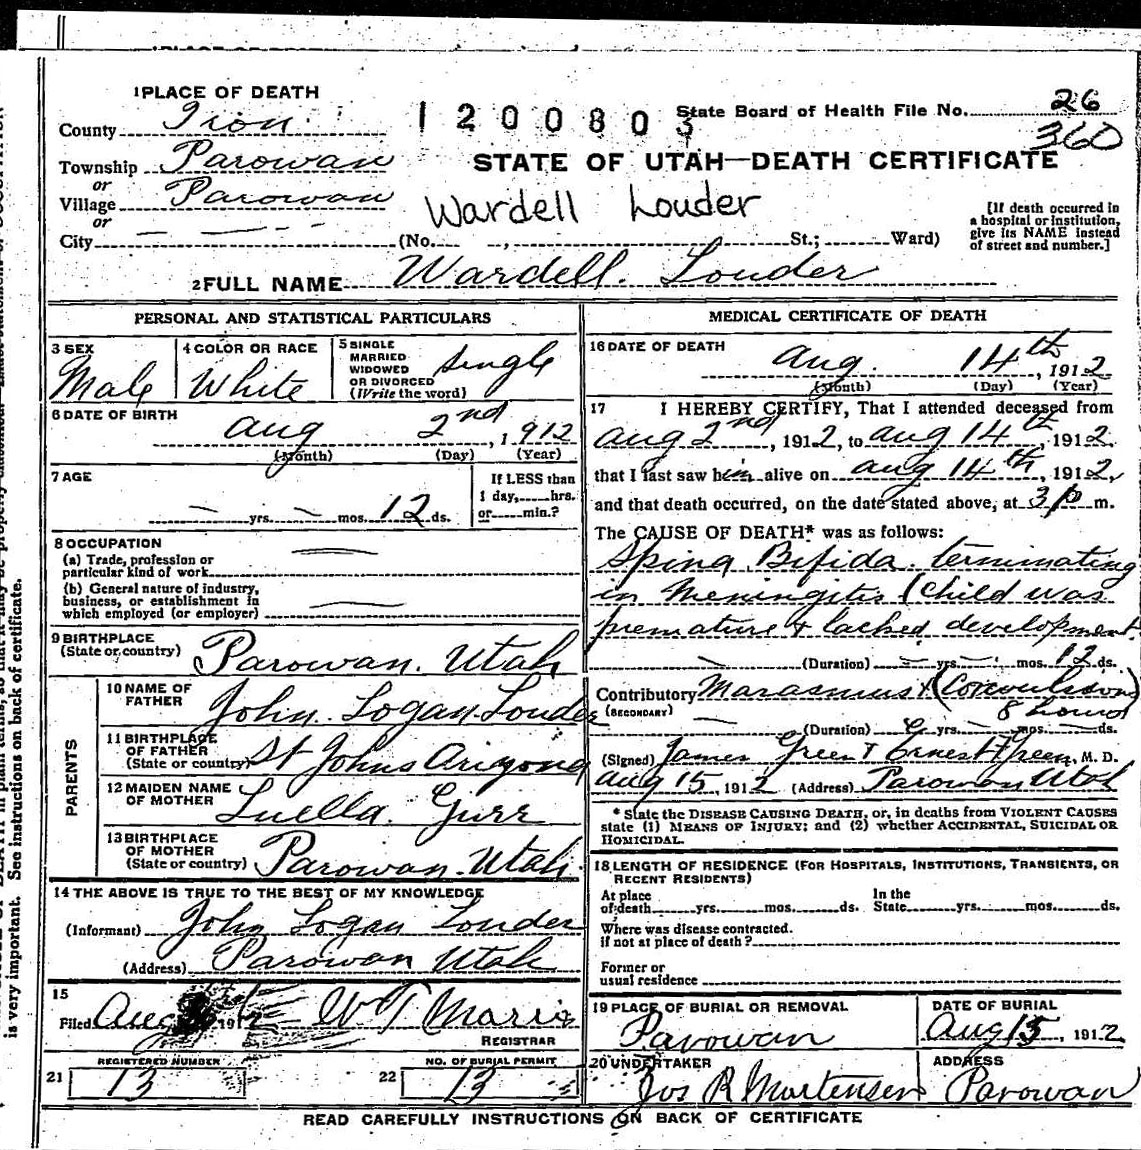 1 PLACE OF DEATH
County Iron
Township Parowan
or
Village Parowan
or
City
1 2 0 0 8 0 3
State Board of Health File No. 26
360
STATE OF UTAH—DEATH CERTIFICATE
Wardell Louder
[If death occurred in
a hospital or institution,
give its NAME instead
of street and number.]
(No. , St.; Ward)
2 FULL NAME Wardell. Louder
PERSONAL AND STATISTICAL PARTICULARS
3 SEX
Male
4 COLOR OR RACE
White
5 SINGLE
MARRIED
WIDOWED
OR DIVORCED
(Write the word)
Single
6 DATE OF BIRTH
Aug 2nd, 1912
(Month) (Day) (Year)
7 AGE
— yrs. — mos. 12 ds.
If LESS than
1 day, hrs.
or min.?
8 OCCUPATION
(a) Trade, profession or
particular kind of work
(b) General nature of industry,
business, or establishment in
which employed (or employer)
9 BIRTHPLACE
(State or country) Parowan. Utah
PARENTS
10 NAME OF
FATHER John Logan Louder
11 BIRTHPLACE
OF FATHER
(State or country) St Johns Arizona
12 MAIDEN NAME
OF MOTHER Luella Gurr
13 BIRTHPLACE
OF MOTHER
(State or country) Parowan. Utah.
14 THE ABOVE IS TRUE TO THE BEST OF MY KNOWLEDGE
(Informant) John Logan Louder
(Address) Parowan Utah
15
Filed Aug 191 W T Morris
REGISTRAR
REGISTERED NUMBER
21 13
NO. OF BURIAL PERMIT
22 13
MEDICAL CERTIFICATE OF DEATH
16 DATE OF DEATH
Aug. 14th, 1912
(Month) (Day) (Year)
17 I HEREBY CERTIFY, That I attended deceased from
Aug 2nd, 1912, to Aug 14th, 1912.
that I last saw him alive on Aug 14th, 1912,
and that death occurred, on the date stated above, at 3 p m.
The CAUSE OF DEATH* was as follows:
Spina Bifida terminating
in Meningitis (Child was
premature & lacked development.
(Duration) — yrs. — mos. 12 ds.
Contributory Marasmus & (Convulsions)
(SECONDARY) 8 hours
(Duration) yrs. mos. ds.
(Signed) James Green & Ernest Green, M. D.
Aug 15, 1912 (Address) Parowan Utah
* State the DISEASE CAUSING DEATH, or, in deaths from VIOLENT CAUSES
state (1) MEANS OF INJURY; and (2) whether ACCIDENTAL, SUICIDAL OR
HOMICIDAL.
18 LENGTH OF RESIDENCE (FOR HOSPITALS, INSTITUTIONS, TRANSIENTS, OR
RECENT RESIDENTS)
At place In the
of death yrs. mos. ds. State yrs. mos. ds.
Where was disease contracted.
if not at place of death?
Former or
usual residence
19 PLACE OF BURIAL OR REMOVAL
Parowan
DATE OF BURIAL
Aug 15, 1912
20 UNDERTAKER
Jos R Mortensen
ADDRESS
Parowan
READ CAREFULLY INSTRUCTIONS ON BACK OF CERTIFICATE
is very important. See instructions on back of certificate.